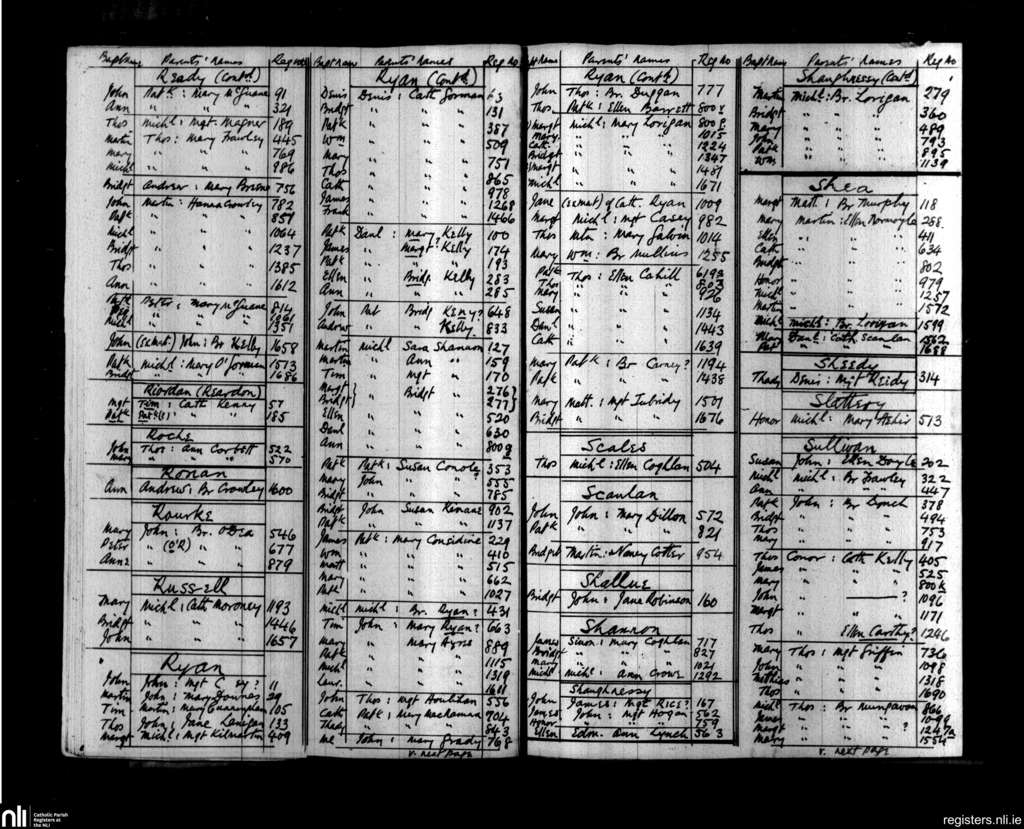 Bapt Name Parents' names Reg no
Ready (Contd)
John Patk: Mary McGuane 91
Ann " " " 321
Thos Michl: Mgt. Magner 189
Martin Thos: Mary Frawley 445
Mary " " " 769
Michl " " " 986
Bridgt Andrew: Mary Browne 756
John Martin: Hanna Crowley 782
Patk " " " 857
Michl " " " 1064
Bridgt " " " 1237
Thos " " " 1385
Ann " " " 1612
Patk Peter: Mary McGuane 814
" " " 861
Michl " " " 1351
John John: Br Kelly 1658
Patk Michl: Mary O'Gorman 1573
Bridgt " " 1686
Riordan (Reardon)
Mgt Tim: Cath Kenny 57
Patk " " 185
Roche
John Thos: Ann Corbett 522
Mary " " " 570
Ronan
Ann Andrew: Br Crowley 1600
Rourke
Mary John: Br. O'Dea 546
Peter " (O'R) " 677
Anne " " " 879
Russell
Mary Michl: Cath Moroney 1193
Bridgt " " " 1446
John " " " 1657
Ryan
John John: Mgt 11
Martin John: Mary Downes 29
Tim Martin: Mary 105
Thos John: Jane Lanigan 133
Margt Michl: Mgt Kilmartin 409
Bapt Name Parents' Names Reg No
Ryan (Contd)
Denis Denis: Cath Gorman 63
Bridgt " " " 131
Patk " " " 387
Wm " " " 509
Mary " " " 751
Thos " " " 865
Cath " " " 978
James " " " 1268
Frank " " " 1466
Patk Danl: Mary Kelly 100
James " Margt? Kelly 174
Patk " " " 193
Ellen " Bridgt Kelly 283
Ann " " " 285
John Pat Bridg Keny? 648
Andrew " " Kelly? 833
Martin Michl Sara Shannon 127
Martin " Ann " 159
Tim " Mgt " 170
Margt } " Bridgt " 276 }
Bridgt } " " 277 }
Ellen " " " 520
Danl " " " 630
Ann " " " 800g
Patk Patk: Susan Conoly 353
Mary John " ? 555
Bridgt " " " 785
Bridgt John Susan Kinane 902
Patk " " " 1137
James Patk: Mary Considine 229
Wm " " " 410
Matt " " " 515
Mary " " " 662
Patk " " " 1027
Michl Michl: Br. Ryan? 431
Tim John: Mary Ryan? 663
Mary " Mary 889
Patk " " " 1115
Michl " " " 1319
Laur. " " " 1611
John Thos: Mgt Houlihan 556
Cath Patk: Mary Macnamara 704
Thos " " " 843
John: Mary Grady 768
v. next page
Bapt Name Parents' names Reg No
Ryan (Contd)
John Thos: Br. Duggan 777
Thos Patk: Ellen Barrett 800
Margt Michl: Mary Lorigan 800
Mary " " " 1015
Cath " " " 1224
Bridgt " " " 1347
Margt " " " 1481
Michl " " " 1671
Jane (exmat) of Cath. Ryan 1009
Margt Michl: Mgt Casey 982
Thos Mtn: Mary Galvin 1014
Mary Wm: Br Mullins 1255
Patk Thos: Ellen Cahill 619
Thos " " " 803
Mary " " " 926
Susan " " " 1134
Danl " " " 1443
Cath " " " 1639
Mary Patk: Br Carney? 1194
Patk " " " 1438
Mary Matt: Mgt Tubridy 1501
Bridgt " " " 1676
Scales
Thos Michl: Ellen Coghlan 504
Scanlan
John John: Mary Dillon 572
Patk " " " 821
Bridget Martin: Nancy Cotter 954
Shallue
Bridgt John: Jane Robinson 160
Shannon
James Simon: Mary Coghlan 717
Bridgt " " " 827
Mary " " " 1021
Michl Michl: Ann Crowe 1292
Shaughnessy
John James: Mgt Rice? 167
James John: Mgt Hogan 562
Honor " " " 759
Ellen Edm. Ann Lynch 563
Bapt Name Parents' Names Reg No
Shaughnessy (Contd)
Martin Michl: Br. Lorigan 279
Bridgt " " " 360
Mary " " " 489
John " " " 793
Patk " " " 895
Wm " " " 1139
Shea
Margt Matt: Br Murphy 118
Mary Martin: Ellen 288
Ellen " " " 411
Cath " " " 634
Bridgt " " " 802
Honor " " " 979
Michl " " " 1257
Martin " " " 1572
Michl Michl: Br. Lorigan 1599
Mary Danl: Cath Scanlan 1562
Patk " " " 1688
Sheedy
Thady Denis: Mgt Reidy 314
Slattery
Honor Michl: Mary 513
Sullivan
Susan John: Ellen Doyle 202
Michl Michl: Br Frawley 322
Ann " " " 447
Patk John: Br Lynch 378
Bridgt " " " 494
Thos " " " 753
Mary " " " 917
Thos Conor: Cath Kelly 405
James " " " 525
Mary " " " 800k
John " ——— ? 1096
Margt " " " 1171
Thos " Ellen Carthy? 1246
Mary Thos: Mgt Griffin 736
John " " " 1098
Mathias " " " 1318
Thos " " " 1690
Michl Thos: Br 866
James " " " 1099
Margt " " " ? 1247a
Mary " " " 1554
v. next page
nli Catholic Parish Registers at the NLI
registers.nli.ie